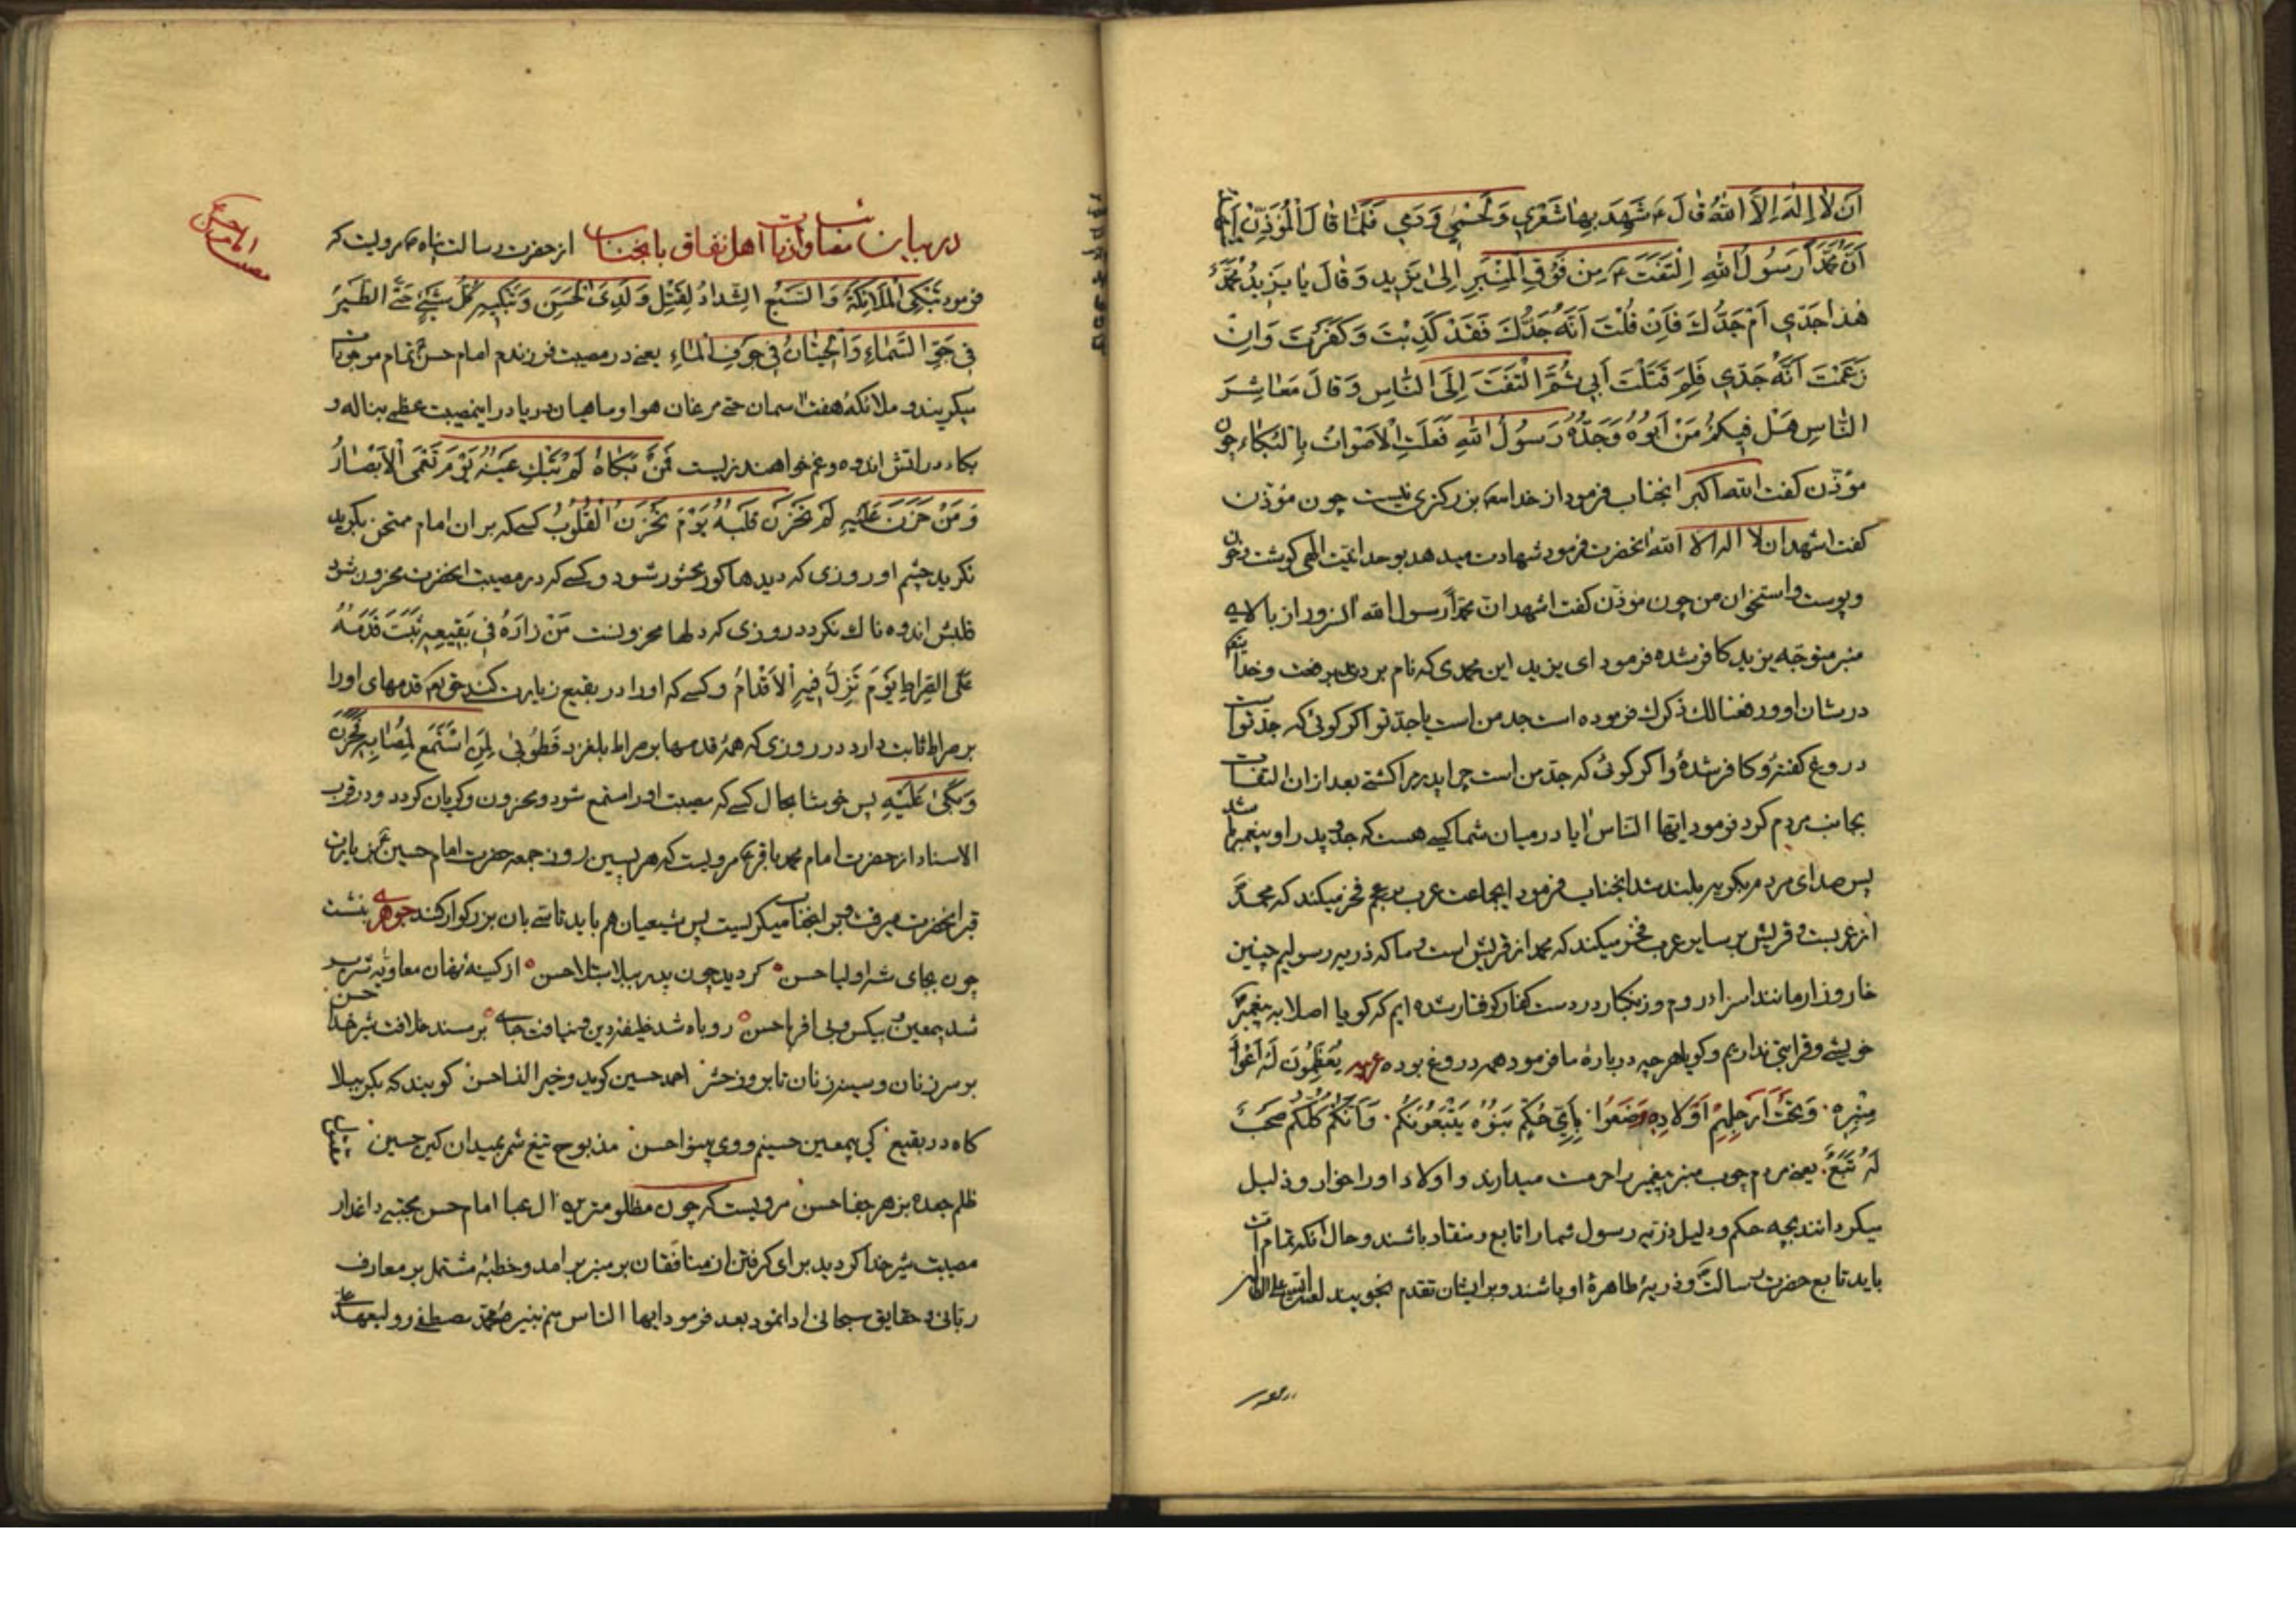 اَنْ لاٰ اِلٰهَ اِلاَّ اللّٰهُ قٰالَ ع شَهِدَ بِهٰا شَعْرِي وَلَحْمِي وَدَمِي فَلَمّٰا قٰالَ الْمُؤَذِّنُ اَشْهَدُ
اَنَّ مُحَمَّداً رَسُولُ اللّٰهِ اِلْتَفَتَ ع مِنْ فَوْقِ الْمِنْبَرِ اِلىٰ يَزِيدِ وَقٰالَ يٰا يَزِيدُ مُحَمَّدٌ
هٰذا جَدّي اَمْ جَدُّكَ فَاِنْ قُلْتَ اَنَّهُ جَدُّكَ فَقَدْ كَذِبْتَ وَكَفَرْتَ وَاِنْ
زَعَمْتَ اَنَّهُ جَدّي فَلِمَ قَتَلْتَ اَبي ثُمَّ الْتَفَتَ اِلَى النّٰاسِ وَقٰالَ مَعٰاشِرَ
النّٰاسِ هَلْ فيكُمْ مَنْ اَبُوهُ وَجَدُّهُ رَسُولُ اللّٰهِ فَعَلَتِ الْاَصْوٰاتُ بِالْبُكٰاءِ چون
مؤذّن کفت الله اکبر انجناب فرمود از خدا بزرکتری نیست چون مؤذن
کفت اشهد ان لا اله الا الله انحضرت فرمود شهادت میدهد بوحدانیّت الهی کوشت و خون
وپوست و استخوان من چون مؤذّن کفت اشهد انّ محمّداً رسول الله انسرور از بالای
منبر متوجّه یزید کافر شده فرمود ای یزید این محمدی که نام بردی و خدا
در شان او ورفعنا لک ذکرک فرموده است جد من است یا جدّ تو اکر کوئی که جدّ تو است
دروغ کفتهٔ و کافر شدهٔ واکر کوئی که جدّ من است چرا پدر مرا کشتی بعد ازان التفات
بجانب مردم کرد فرمود ایها النّاس ایا در میان شما کسی هست که جدّ و پدر او پیغمبر باشد
پس صدای مردم بکریه بلند شد انجناب فرمود ایجماعت عرب بر عجم فخر میکند که محمدّ
از عربست و قریش بر سایر عرب فخر میکند که محمد از قریش است و ما که ذریه رسولیم چنین
خار و زار مانند اسراء روم و زنکبار در دست کفار کرفتار شده ایم که کویا اصلا به پیغمبر
خویشی و قرابتی نداریم و کویا هر چه دربارهٔ ما فرمود همه دروغ بوده عربیه یُعَظِّمُونَ لَهُ اَعْوٰادَ
مِنْبَرِهِ وَتَحْتَ اَرْجُلِهِمْ اَوْلادِهِ وَضَعُوا بِاَيِّ حُكْمٍ بَنُوهُ يَتْبَعُونَكُمْ وَاَنَّكُمْ كُلَّكُمْ صَحْبٌ
لَهُ تَبَعٌ یعنی مردم چوب منبر پیغمبر را حرمت میدارند و اولاد او را خوار و ذلیل
میکردانند بچه حکم و دلیل ذرّیه رسول شما را تابع و منقاد باشند و حال انکه تمام امّت
باید تابع حضرت رسالت و ذریهٔ طاهرهٔ او باشند و بر ایشان تقدم نجویند
در بیان اهل نفاق با انجناب از حضرت رسالت پناه ص مرویست که
فرمود تَبْكِي الْمَلاٰئِكَةُ وَالسَّبْعُ الشِّدٰادُ لِقَتْلِ وَلَدِيَ الْحَسَنِ وَتَبْكِيهِ كُلُّ شَيْءٍ حَتَّى الطَّيْرُ
فِي جَوِّ السَّمٰاءِ وَالْحِيتٰانُ فِي جَوْفِ الْمٰاءِ یعنی در مصیبت فرزندم امام حسن تمام موجودات
میکریند و ملائکهٔ هفت اسمان حتی مرغان هوا و ماهیان دریا در اینمصیبت عظمی بناله و
بکا و در اتش اندوه و غم خواهند زیست فَمَنْ بَكٰاهُ لَمْ تَبْكِ عَيْنُهُ يَوْمَ تَعْمَى الْاَبْصٰارُ
وَمَنْ حَزَنَ عَلَيْهِ لَمْ يَحْزَنْ قَلْبُهُ يَوْمَ تَحْزَنُ الْقُلُوبُ کسی که بر ان امام ممتحن بکرید
نکرید چشم او روزی که دیدها کور محشور شود و کسی که در مصیبت انحضرت محزون شود
قلبش اندوه ناک نکردد روزی که دلها محزونست مَنْ زٰارَهُ فِي بَقِيعِهِ ثَبَتَ قَدَمُهُ
عَلَى الصِّرٰاطِ يَوْمَ تَزِلُّ فِيهِ الْاَقْدٰامُ و کسی که او را در بقیع زیارت کند حق تعالی قدمهای او را
بر صراط ثابت دارد در روزی که همهٔ قدمها بر صراط بلغزد فَطُوبىٰ لِمَنِ اسْتَمَعَ لِمُصٰابِهِ فَحَزَنَ
وَبَكىٰ عَلَيْهِ پس خوشا بحال کسی که مصیبت او را استمع شود و محزون و کریان کردد و در قرب
الاسناد از حضرت امام محمد باقر ع مرویست که هر پسین روز جمعه حضرت امام حسین ع بزیارت
قبر انحضرت میرفت و بر انجناب میکریست پس شیعیان هم باید تاسی بان بزرکوار کنند جوهری بنشست
چون بجای شه اولیا حسن کردید چون پدر ببلا مبتلا حسن از کینهٔ نهان معاویه
شد بیمعین و بیکس و بی اقربا حسن روباه شد خلیفهٔ دین و نیافت جای بر مسند خلافت شیر خدا حسن
بر سر زنان و سینه زنان تا بروز حشر احمد حسین کوید و خیر النسا حسن کویند که بکربلا
کاه در بقیع کی بیمعین حسینم و وی بینوا حسن مذبوح تیغ شمر بمیدان کین حسین مقتول
ظلم جعده بزهر جفا حسن مرویست که چون مظلومترین ال عبا امام حسن مجتبی داغدار
مصیبت شیر خدا کردید برای کرفتن از منافقان بر منبر بر امد و خطبهٔ مشتمل بر معارف
ربّانی و حقایق سبحانی ادا نمود بعد فرمود ایها الناس منم نبیرهٔ محمّد مصطفی و ولیعهد